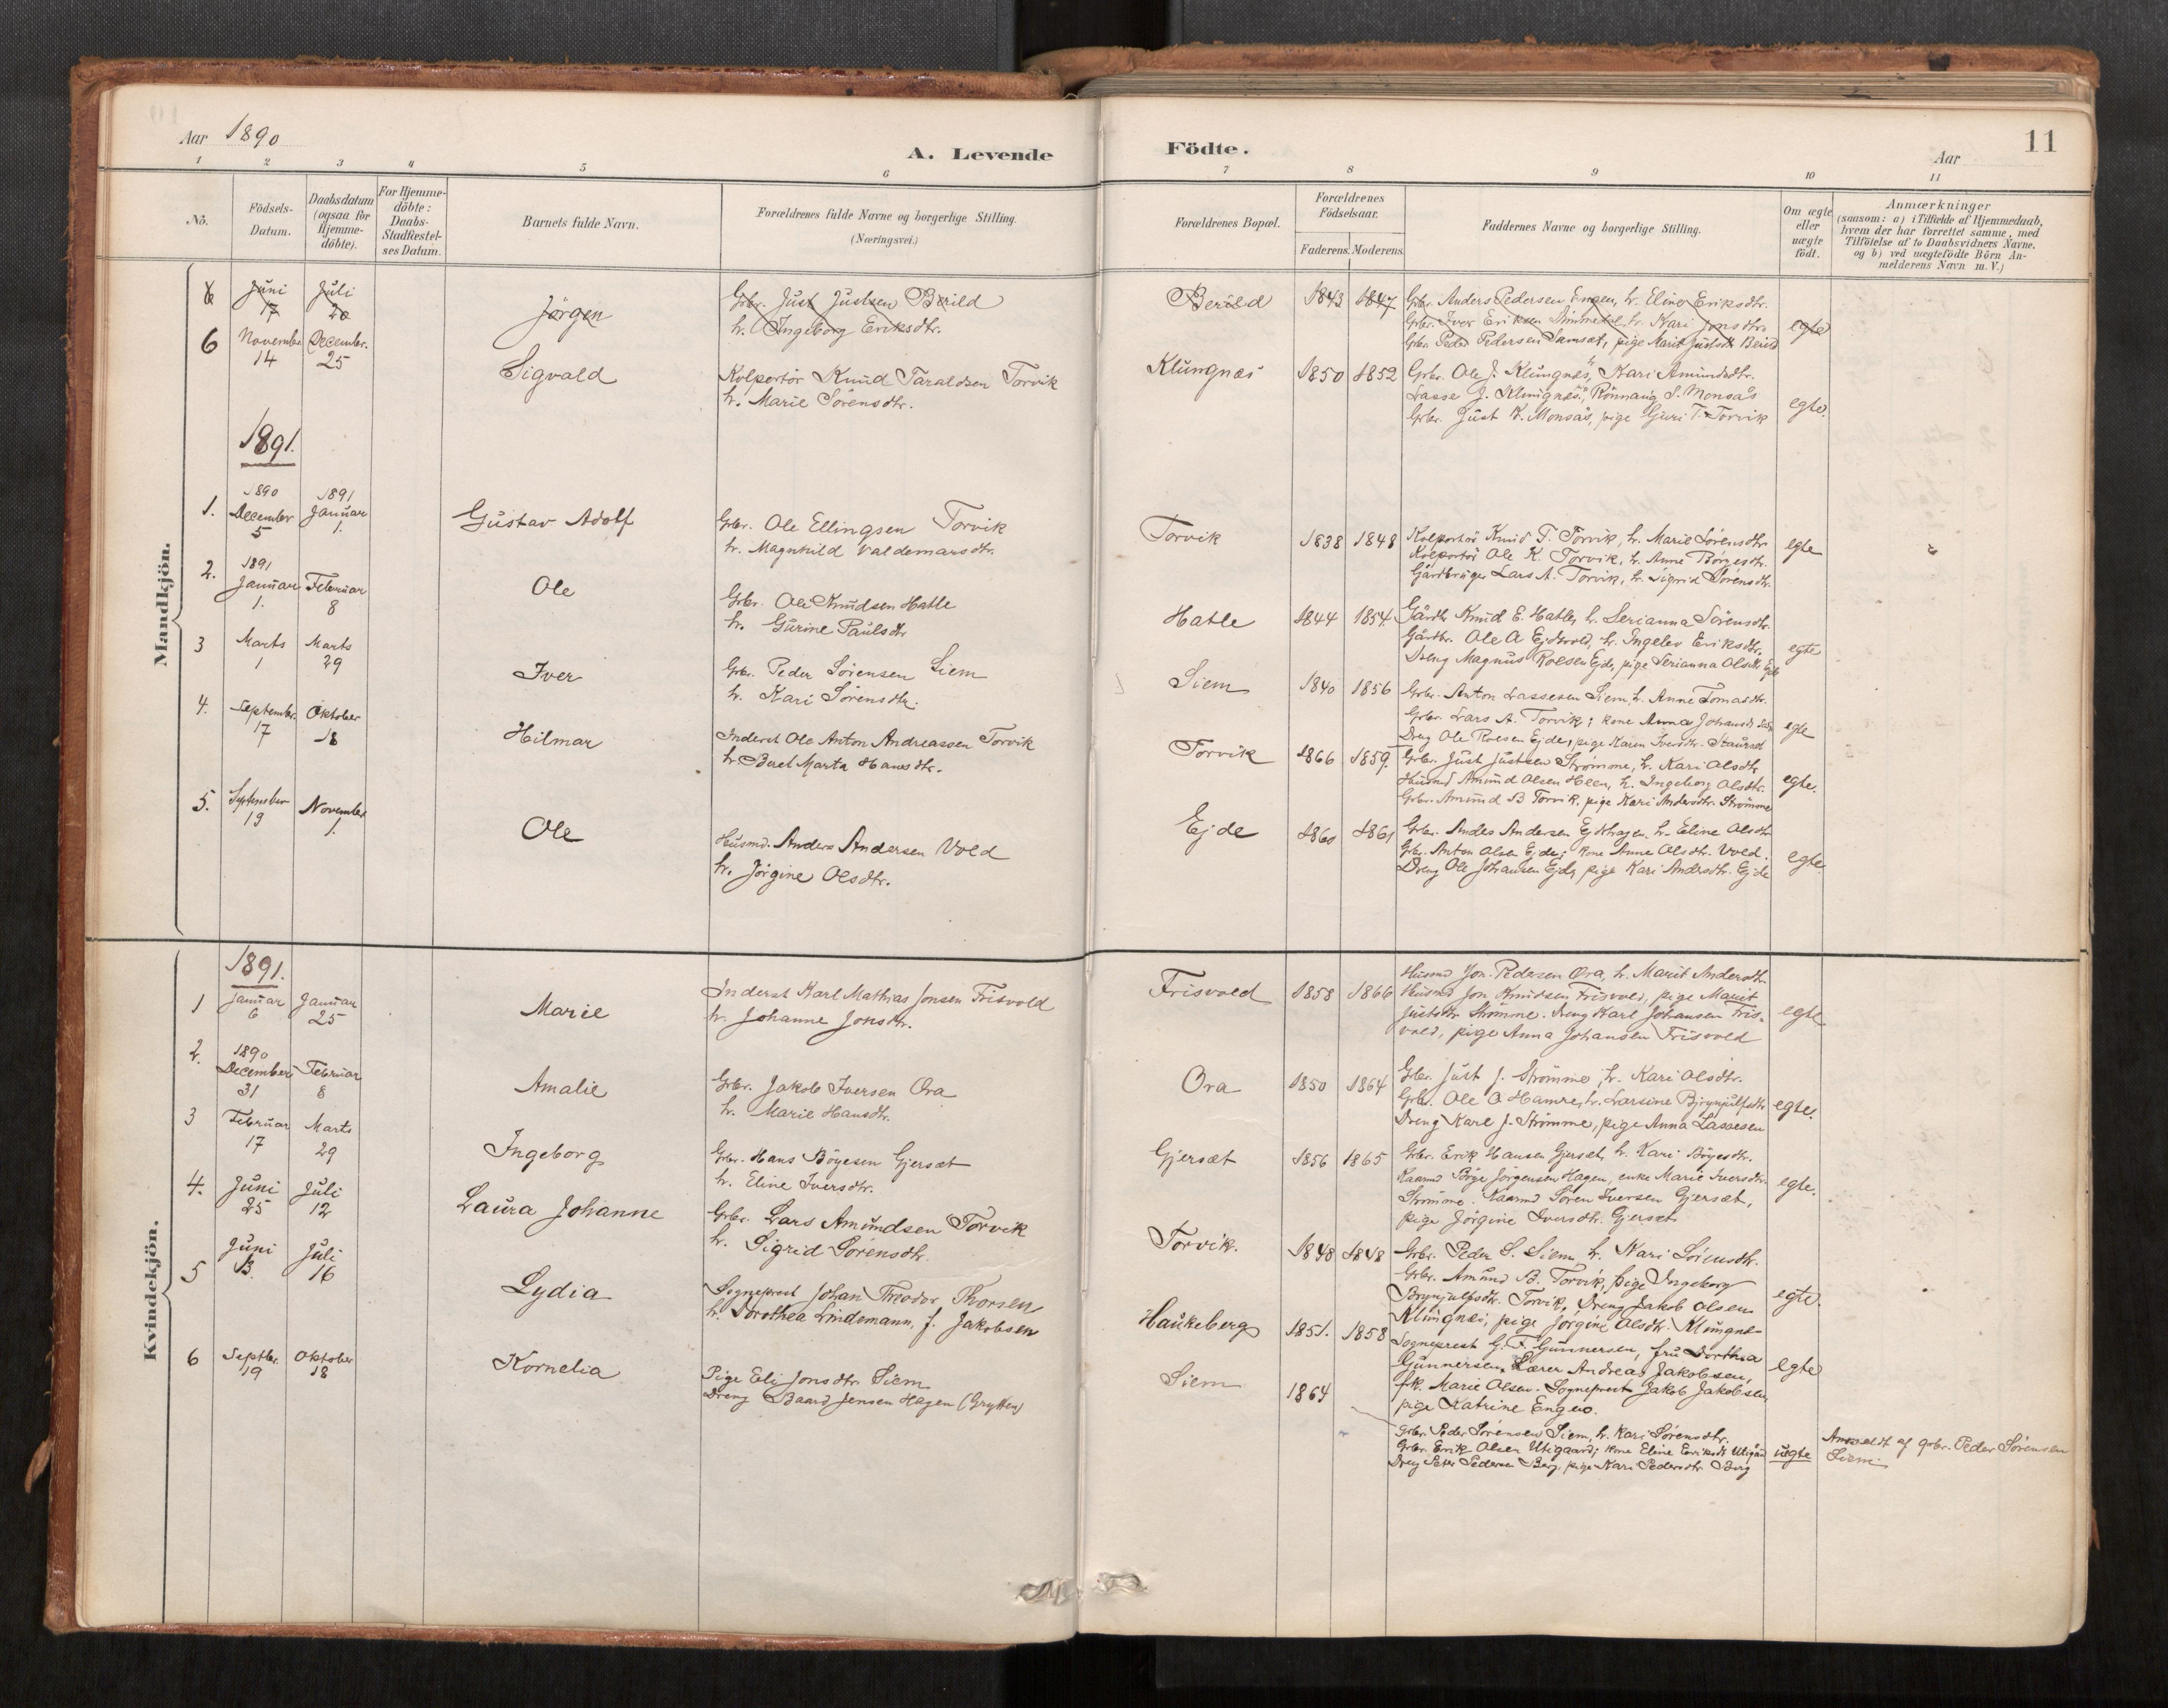 Aar 1890
A. Levende Födte.
Aar
11
1 2 3 4 5 6 7 8 9 10 11
No.
Födsels-Datum.
Daabsdatum (ogsaa for Hjemme-döbte).
For Hjemme-döbte: Daabs-Stadfestel-ses Datum.
Barnets fulde Navn.
Forældrenes fulde Navne og borgerlige Stilling. (Næringsvei.)
Forældrenes Bopæl.
Forældrenes Födselsaar.
Faderens. Moderens.
Faddernes Navne og borgerlige Stilling.
Om ægte eller uægte födt.
Anmærkninger
(saasom: a) i Tilfælde af Hjemmedaab,
hvem der har forrettet samme, med
Tilföielse af to Daabsvidners Navne.
og b) ved uægtefödte Börn An-
melderens Navn m. V.)
Mandkjön.
6 Juni 17 Juli 20 Jørgen
Grbr. Just Justsen Berild
h. Ingeborg Eriksdtr.
Berild 1843 1847
Grbr. Anders Pedersen Engen, h. Eline Eriksdtr.
Grbr. Iver Eriksen h. Kari Jonsdtr.
Grbr. Peder Pedersen Samsæt, pige Marit Justsdtr. Berild
egte
6 November 14 December. 25 Sigvald
Kolportör Knud Taraldsen Torvik
h. Marie Sörensdtr.
Klungnæs 1850 1852
Grbr. Ole J. Klungnæs, h. Kari Amundsdtr.
Lasse J. Klungnæs, Rönnaug S. Monsås
Grbr. Just K. Monsås, pige Guri T. Torvik
egte.
1891.
1. 1890 December 5 1891 Januar 1. Gustav Adolf
Grbr. Ole Ellingsen Torvik
h. Magnhild Valdemarsdtr.
Torvik 1838 1848
Kolportör Knud T. Torvik, h. Marie Sörensdtr.
Kolportör Ole K. Torvik, h. Anne Börgesdtr.
Gårdbruger Lars A. Torvik, h. Sigrid Sörensdtr.
egte
2. 1891 Januar 1. Februar 8 Ole
Grbr. Ole Knudsen Hatle
h. Gurine Paulsdtr
Hatle 1844 1854
Gårdbr. Knud E. Hatle, h. Serianna Sörensdtr.
Gårdbr. Ole A h. Ingelev Eriksdtr.
Dreng Magnus Roesen Ejde, pige Serianna Olsdtr. Ejde
egte
3 Marts 1 Marts 29 Iver
Grbr. Peder Sörensen Siem
h. Kari Sörensdtr.
Siem 1840 1856
Grbr. Anton Lassesen Siem, h. Anne Tomasdtr.
Grbr. Lars A. Torvik; kone Anna Johansdtr
Dreng Ole Roesen Ejde, pige Karen Iversdtr.
egte
4. September. 17 Oktober 18 Hilmar
Inderst Ole Anton Andreassen Torvik
h. Beret Marta Hansdtr.
Torvik 1866 1859.
Grbr. Just Justsen Strömme, h. Kari Olsdtr
Husmd Amund Olsen Heen, h. Ingeborg Olsdtr.
Grbr. Amund B Torvik, pige Kari Andersdtr. Strömme
egte.
5. September 19 November 1. Ole
Husmd. Anders Andersen Vold
h. Jörgine Olsdtr.
Ejde 1860 1861
Grbr. Andles Andersen Ejdehagen, h. Eline Olsdtr
Grbr. Anton Olsen Ejde; kone Anne Olsdtr. Vold.
Dreng Ole Johansen Ejde, pige Kari Andersdtr. Ejde
egte
Kvindekjön.
1891.
1 Januar 6 Januar 25 Marie
Inderst Karl Mathias Jonsen Frisvold
h. Johanne Jonsdtr.
Frisvold 1858 1866
Husmd Jon Pedersen Ora, h. Marit Andersdtr.
Husmd Jon Knudsen Frisvold, pige Marit
Justsdtr Strömme. Dreng Karl Johansen Fris-
vold, pige Anna Johansen Frisvold
egte
2. 1890 December 31 Februar 8 Amalie
Grbr. Jakob Iversen Ora
h. Marie Hansdtr.
Ora 1850 1864
Grbr. Just J. Strömme, h. Kari Olsdtr.
Grbr. Ole O Hamre, h. Larsine Brynjulfsdtr
Dreng Karl J. Strömme, pige Anna Lassesen
egte.
3 Februar 17 Marts 29 Ingeborg
Grbr. Hans Böyesen Gjersæt
h. Eline Iversdtr.
Gjersæt 1856 1865
Grbr. Erik Hansen Gjersæt, h. Kari Böyesdtr.
Kaarmd Börge Jörgensen Hagen, enke Marie Iversdtr.
Strömme. Kaarmd Sören Iversen Gjersæt,
pige Jörgine Iversdtr. Gjersæt
egte.
4. Juni 25 Juli 12 Laura Johanne
Grbr. Lars Amundsen Torvik
h. Sigrid Sörensdtr.
Torvik. 1848 1848
Grbr. Peder S. Siem, h. Kari Sörensdtr.
Grbr. Amund B. Torvik, pige Ingeborg
Brynjulfsdtr. Torvik, Dreng Jakob Olsen
Klungnæs, pige Jörgine Olsdtr. Klungnæs
egte.
5 Juni 13. Juli 16 Lydia
Sogneprest Johan Theodor Thorsen
h. Dorothea Lindemann, f. Jakobsen
Haukeberg 1851. 1858
Sogneprest G. F. Gunnersen, fru Dorthea
Gunnersen, Lærer Andreas Jakobsen,
frk. Marie Olsen. Sogneprest Jakob Jakobsen,
pige Katrine Engen.
egte
6 Septbr. 19 Oktober 18 Kornelia
Pige Eli Jonsdtr Siem
Dreng Baard Jensen Hagen (Grytten)
Siem 1864
Grbr. Peder Sörensen Siem, h. Kari Sörensdtr.
Grbr. Erik Olsen Utigaard; kone Eline Eriksdtr Utigård
Dreng Peter Pedersen Berg, pige Kari Pedersdtr Berg
uegte
Anmeldt af grbr. Peder Sörensen
Siem